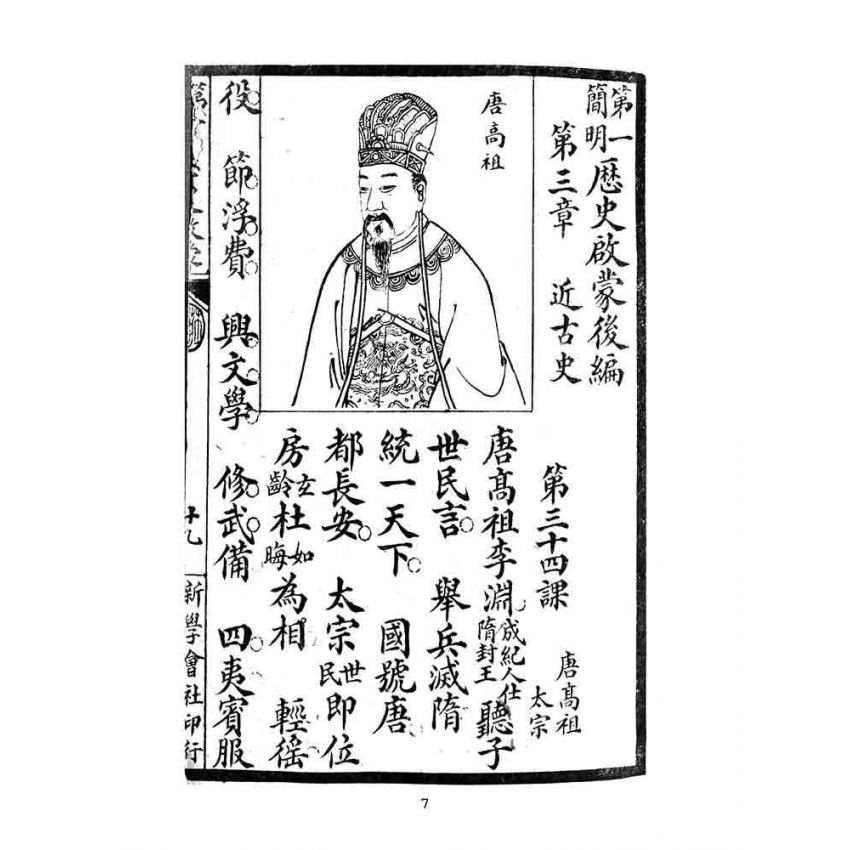 第一簡明歷史啟蒙後編
第三章 近古史
第三十四課 唐髙祖 太宗
唐高祖
唐髙祖李淵成紀人仕隋封王聽子
世民言 舉兵滅隋
統一天下 國號唐
都長安 太宗世民即位
房玄齡杜如晦為相 輕徭
役 節浮費 興文學 修武備 四夷賓服
十九 新學會社印行
7